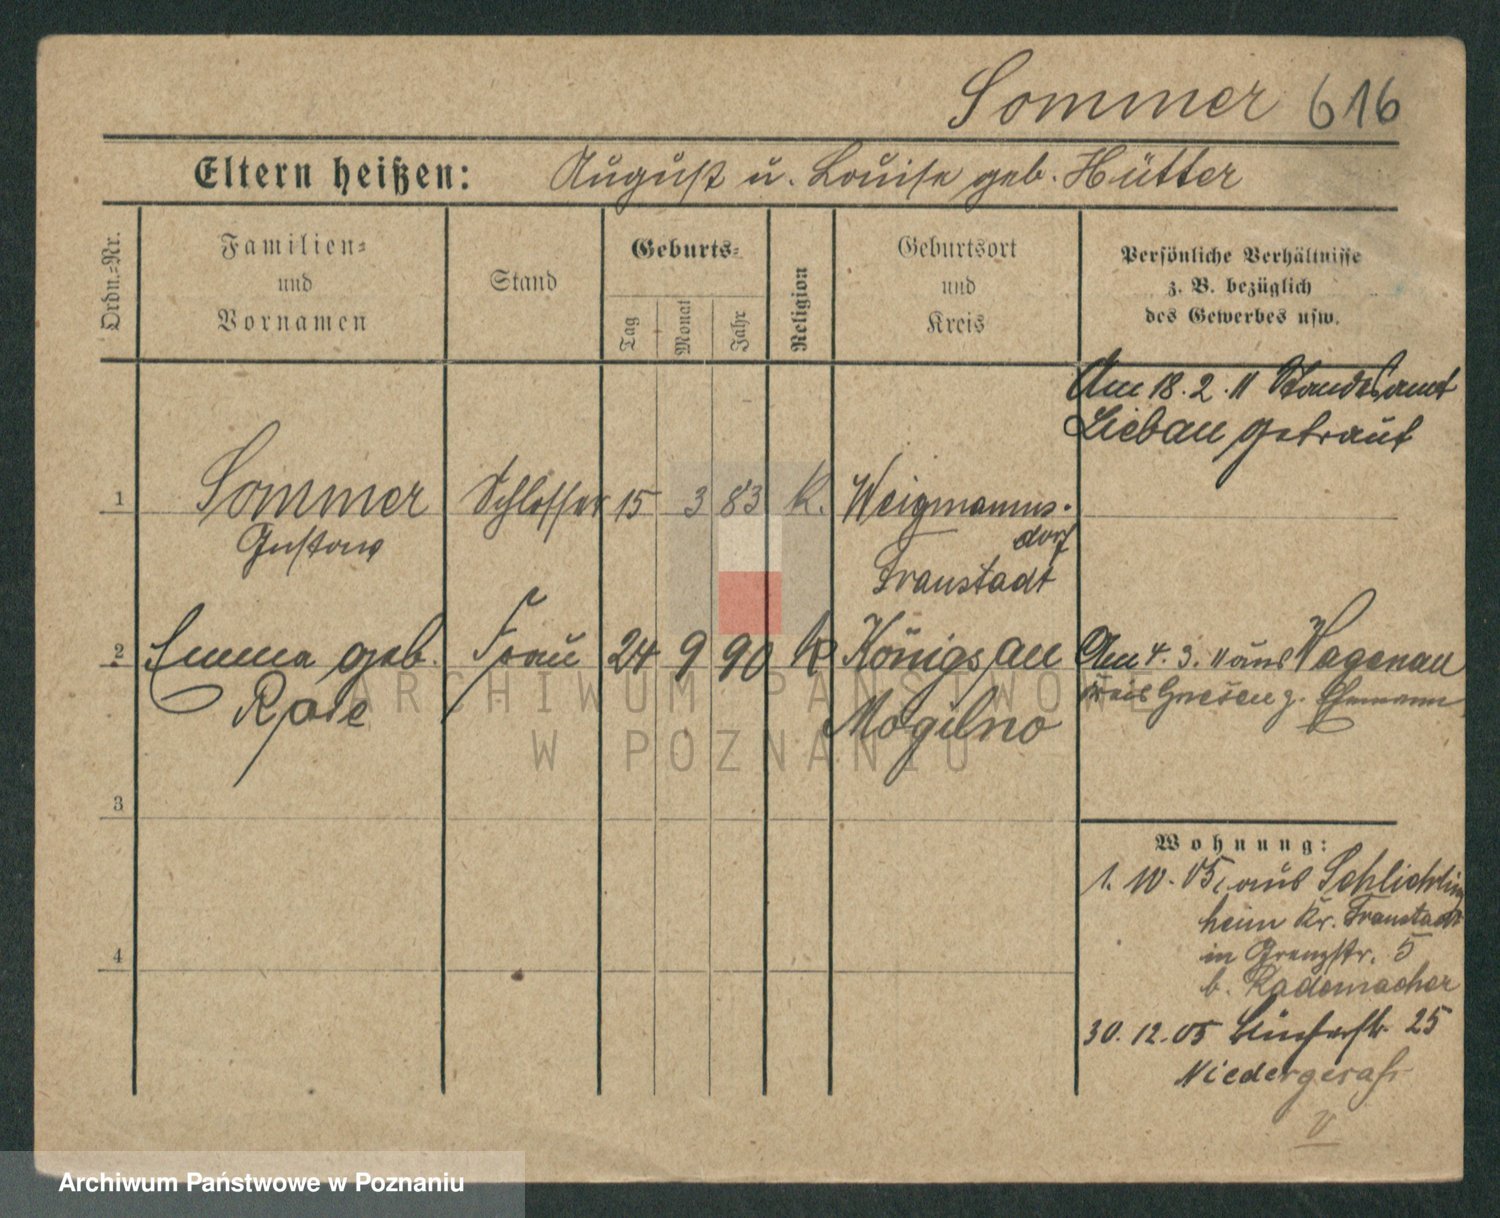 Sommer 616
Eltern heißen: August u. Louise geb. Hütter
Ordn.=Nr.
Familien=
und
Vornamen
Stand
Geburts=
Tag
Monat
Jahr
Religion
Geburtsort
und
Kreis
Persönliche Verhältnisse
z. B. bezüglich
des Gewerbes usw.
Am 18. 2. 11 Standesamt
Liebau getraut
1 Sommer Schlosser 15 3 83 k. Weigmanns-
Gustav dorf
Fraustadt
2 Emma geb. Frau 24 9 90 k Königsau Am 4. 3. 11 aus Hagenau
Rose Mogilno Kreis Gnesen z. Ehemann
3
4
Wohnung:
1. 10. 05, aus Schlichting
heim Kr. Fraustadt
in Grenzstr. 5
b. Rademacher
30. 12. 05 25
ARCHIWUM PAŃSTWOWE
W POZNANIU
Archiwum Państwowe w Poznaniu